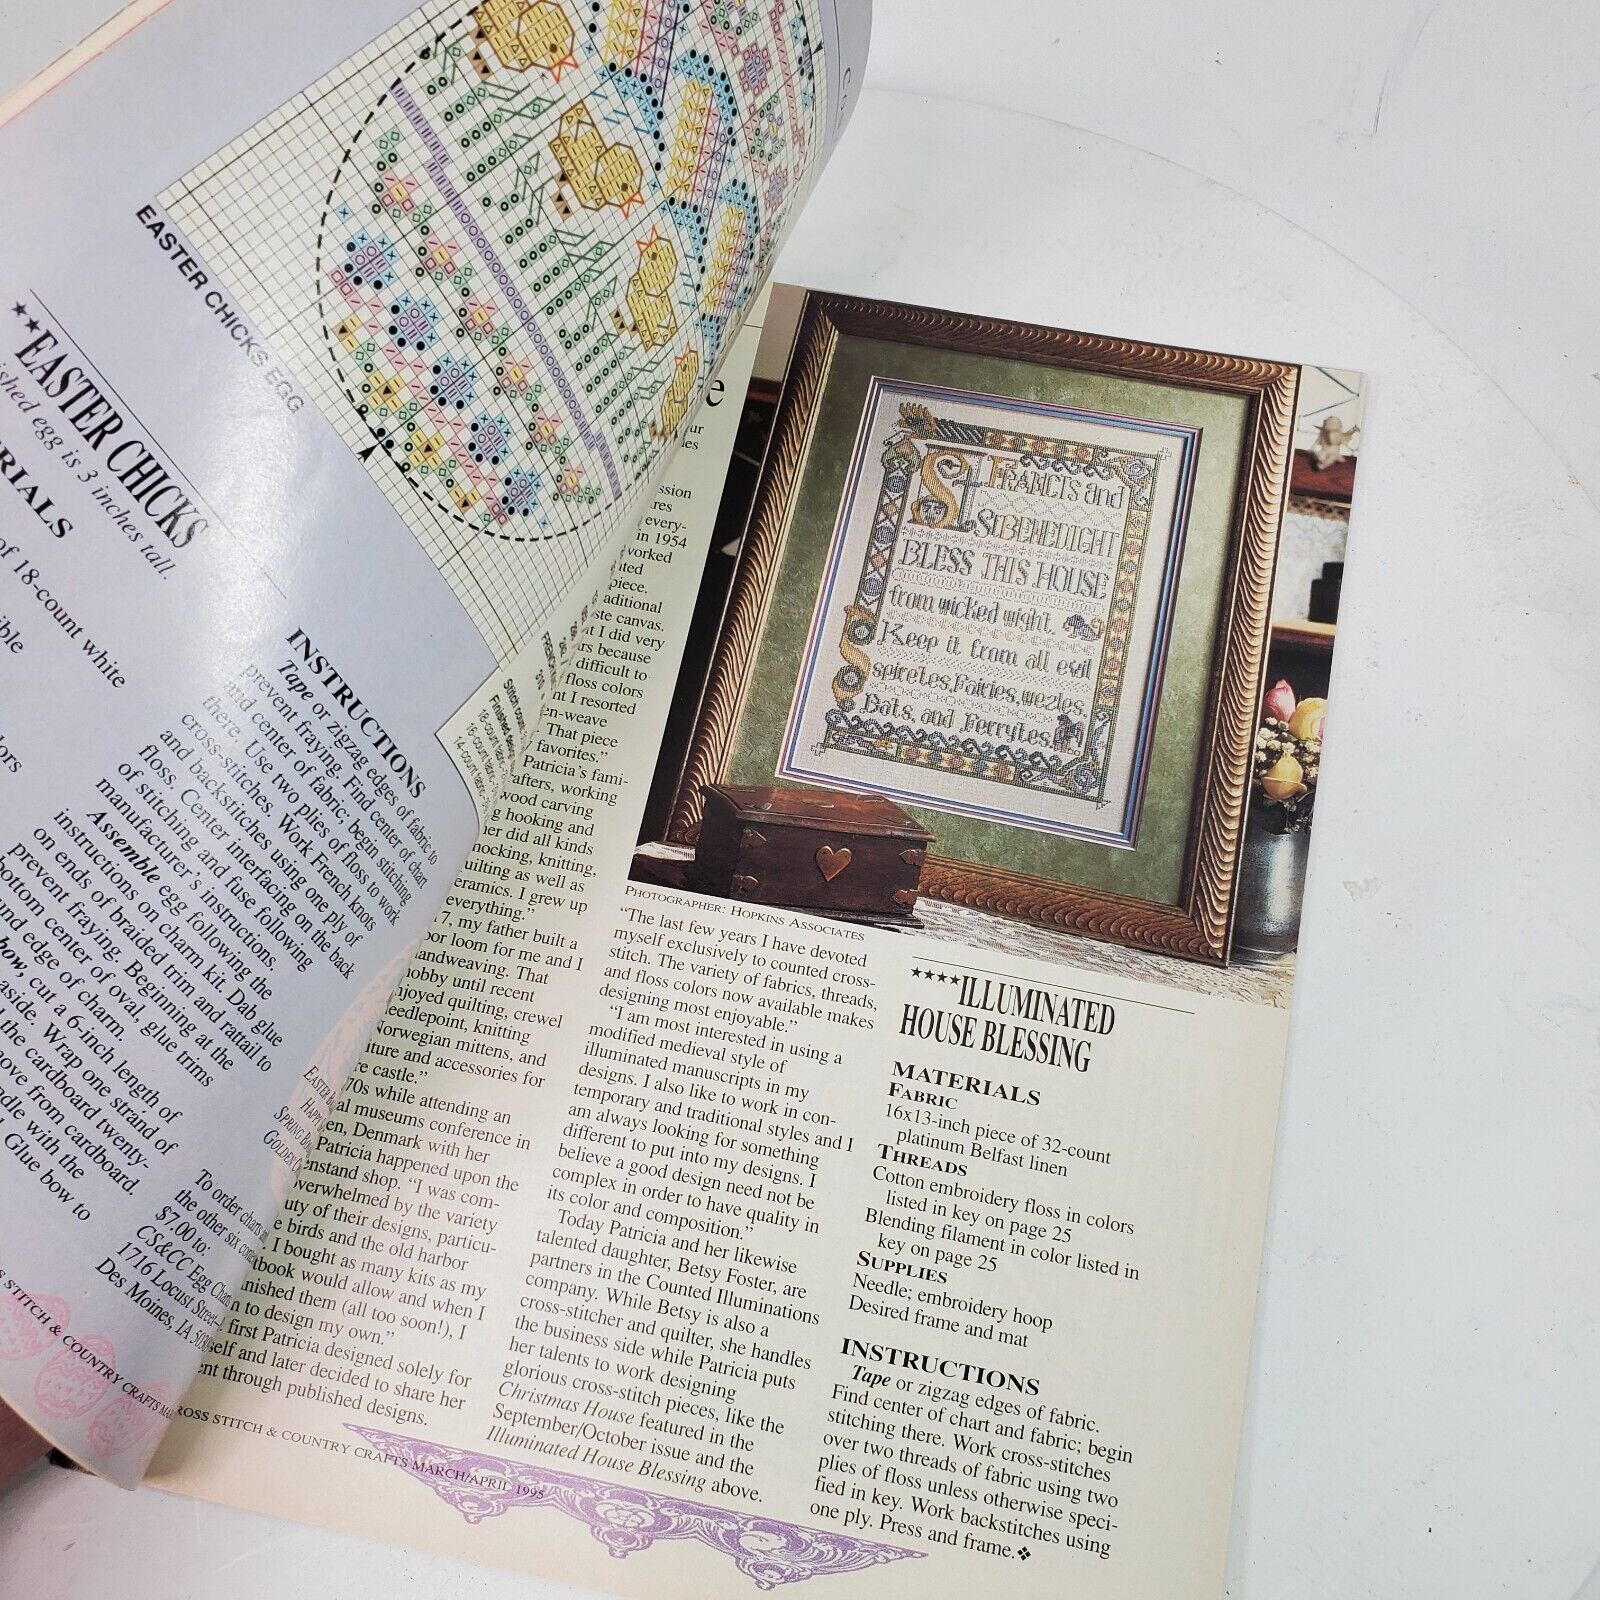 EASTER CHICKS EGG
EASTER CHICKS
egg is 3 inches tall.
of 18-count white
INSTRUCTIONS
Tape or zigzag edges of fabric to
prevent fraying. Find center of chart
and center of fabric; begin stitching
there. Use two plies of floss to work
cross-stitches. Work French knots
and backstitches using one ply of
floss. Center interfacing on the back
of stitching and fuse following
manufacturer's instructions.
Assemble egg following the
instructions on charm kit. Dab glue
on ends of braided trim and rattail to
prevent fraying. Beginning at the
bottom center of oval, glue trims
edge of charm.
bow, cut a 6-inch length of
aside. Wrap one strand of
the cardboard twenty-
from cardboard.
with the
Glue bow to
To order charts
the other six
$7.00 to:
CS&CC Egg
1716 Locust Street
Des Moines, IA
STITCH & COUNTRY CRAFTS
Stitch count:
Finished design
18-count fabric
16-count fabric
14-count fabric
in 1954
worked
piece.
canvas.
I did very
because
difficult to
floss colors
I resorted
That piece
favorites."
Patricia's fami-
working
wood carving
hooking and
did all kinds
knitting,
as well as
I grew up
everything."
my father built a
loom for me and I
That
until recent
quilting, crewel
knitting
Norwegian mittens, and
and accessories for
castle."
while attending an
museums conference in
Denmark with her
Patricia happened upon the
shop. "I was com-
by the variety
of their designs, particu-
birds and the old harbor
I bought as many kits as my
would allow and when I
them (all too soon!), I
to design my own."
first Patricia designed solely for
and later decided to share her
through published designs.
STITCH & COUNTRY CRAFTS MARCH/APRIL 1995
St. FRANCIS and
St BENEDIGHT
BLESS THIS HOUSE
from wicked wight.
Keep it from all evil
spiretes, Fairies, wezles,
Bats, and Ferrytes.
PHOTOGRAPHER: HOPKINS ASSOCIATES
"The last few years I have devoted
myself exclusively to counted cross-
stitch. The variety of fabrics, threads,
and floss colors now available makes
designing most enjoyable."
"I am most interested in using a
modified medieval style of
illuminated manuscripts in my
designs. I also like to work in con-
temporary and traditional styles and I
am always looking for something
different to put into my designs. I
believe a good design need not be
complex in order to have quality in
its color and composition."
Today Patricia and her likewise
talented daughter, Betsy Foster, are
partners in the Counted Illuminations
company. While Betsy is also a
cross-stitcher and quilter, she handles
the business side while Patricia puts
her talents to work designing
glorious cross-stitch pieces, like the
Christmas House featured in the
September/October issue and the
Illuminated House Blessing above.
★★★★ILLUMINATED
HOUSE BLESSING
MATERIALS
FABRIC
16x13-inch piece of 32-count
platinum Belfast linen
THREADS
Cotton embroidery floss in colors
listed in key on page 25
Blending filament in color listed in
key on page 25
SUPPLIES
Needle; embroidery hoop
Desired frame and mat
INSTRUCTIONS
Tape or zigzag edges of fabric.
Find center of chart and fabric; begin
stitching there. Work cross-stitches
over two threads of fabric using two
plies of floss unless otherwise speci-
fied in key. Work backstitches using
one ply. Press and frame.❖